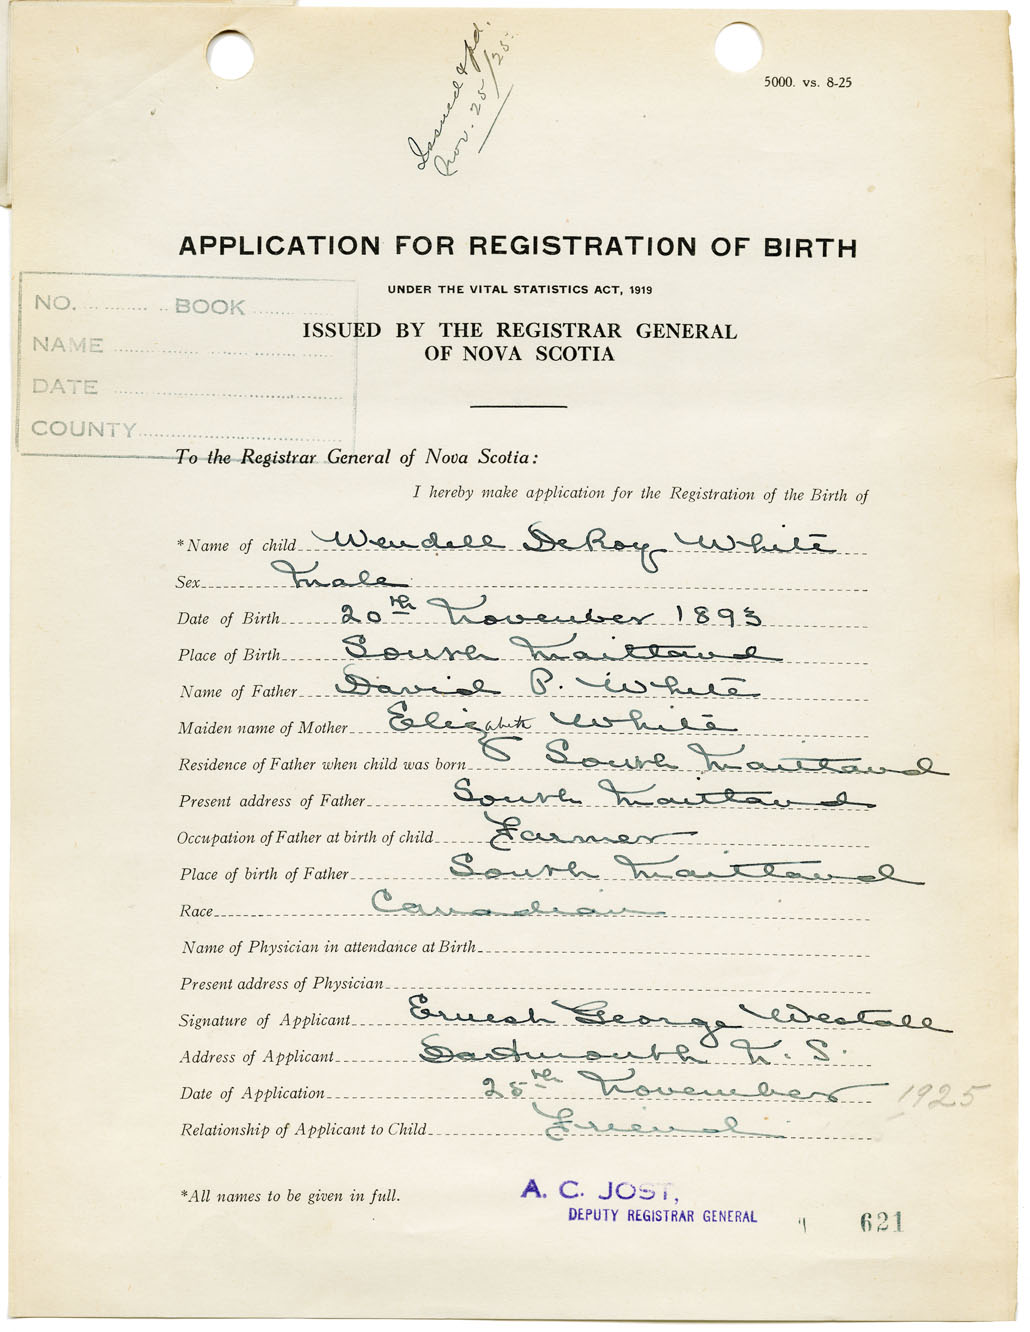 Issued & pd.
Nov. 25/25.
5000. vs. 8-25
APPLICATION FOR REGISTRATION OF BIRTH
UNDER THE VITAL STATISTICS ACT, 1919
ISSUED BY THE REGISTRAR GENERAL
OF NOVA SCOTIA
NO. BOOK
NAME
DATE
COUNTY
To the Registrar General of Nova Scotia:
I hereby make application for the Registration of the Birth of
*Name of child Wendell DeRoy White
Sex Male
Date of Birth 20th November 1893
Place of Birth South Maitland
Name of Father David P. White
Maiden name of Mother Elizabeth White
Residence of Father when child was born South Maitland
Present address of Father South Maitland
Occupation of Father at birth of child Farmer
Place of birth of Father South Maitland
Race Canadian
Name of Physician in attendance at Birth
Present address of Physician
Signature of Applicant Ernest George Westall
Address of Applicant Dartmouth N. S.
Date of Application 25th November 1925
Relationship of Applicant to Child Friend
*All names to be given in full.
A. C. JOST,
DEPUTY REGISTRAR GENERAL
621